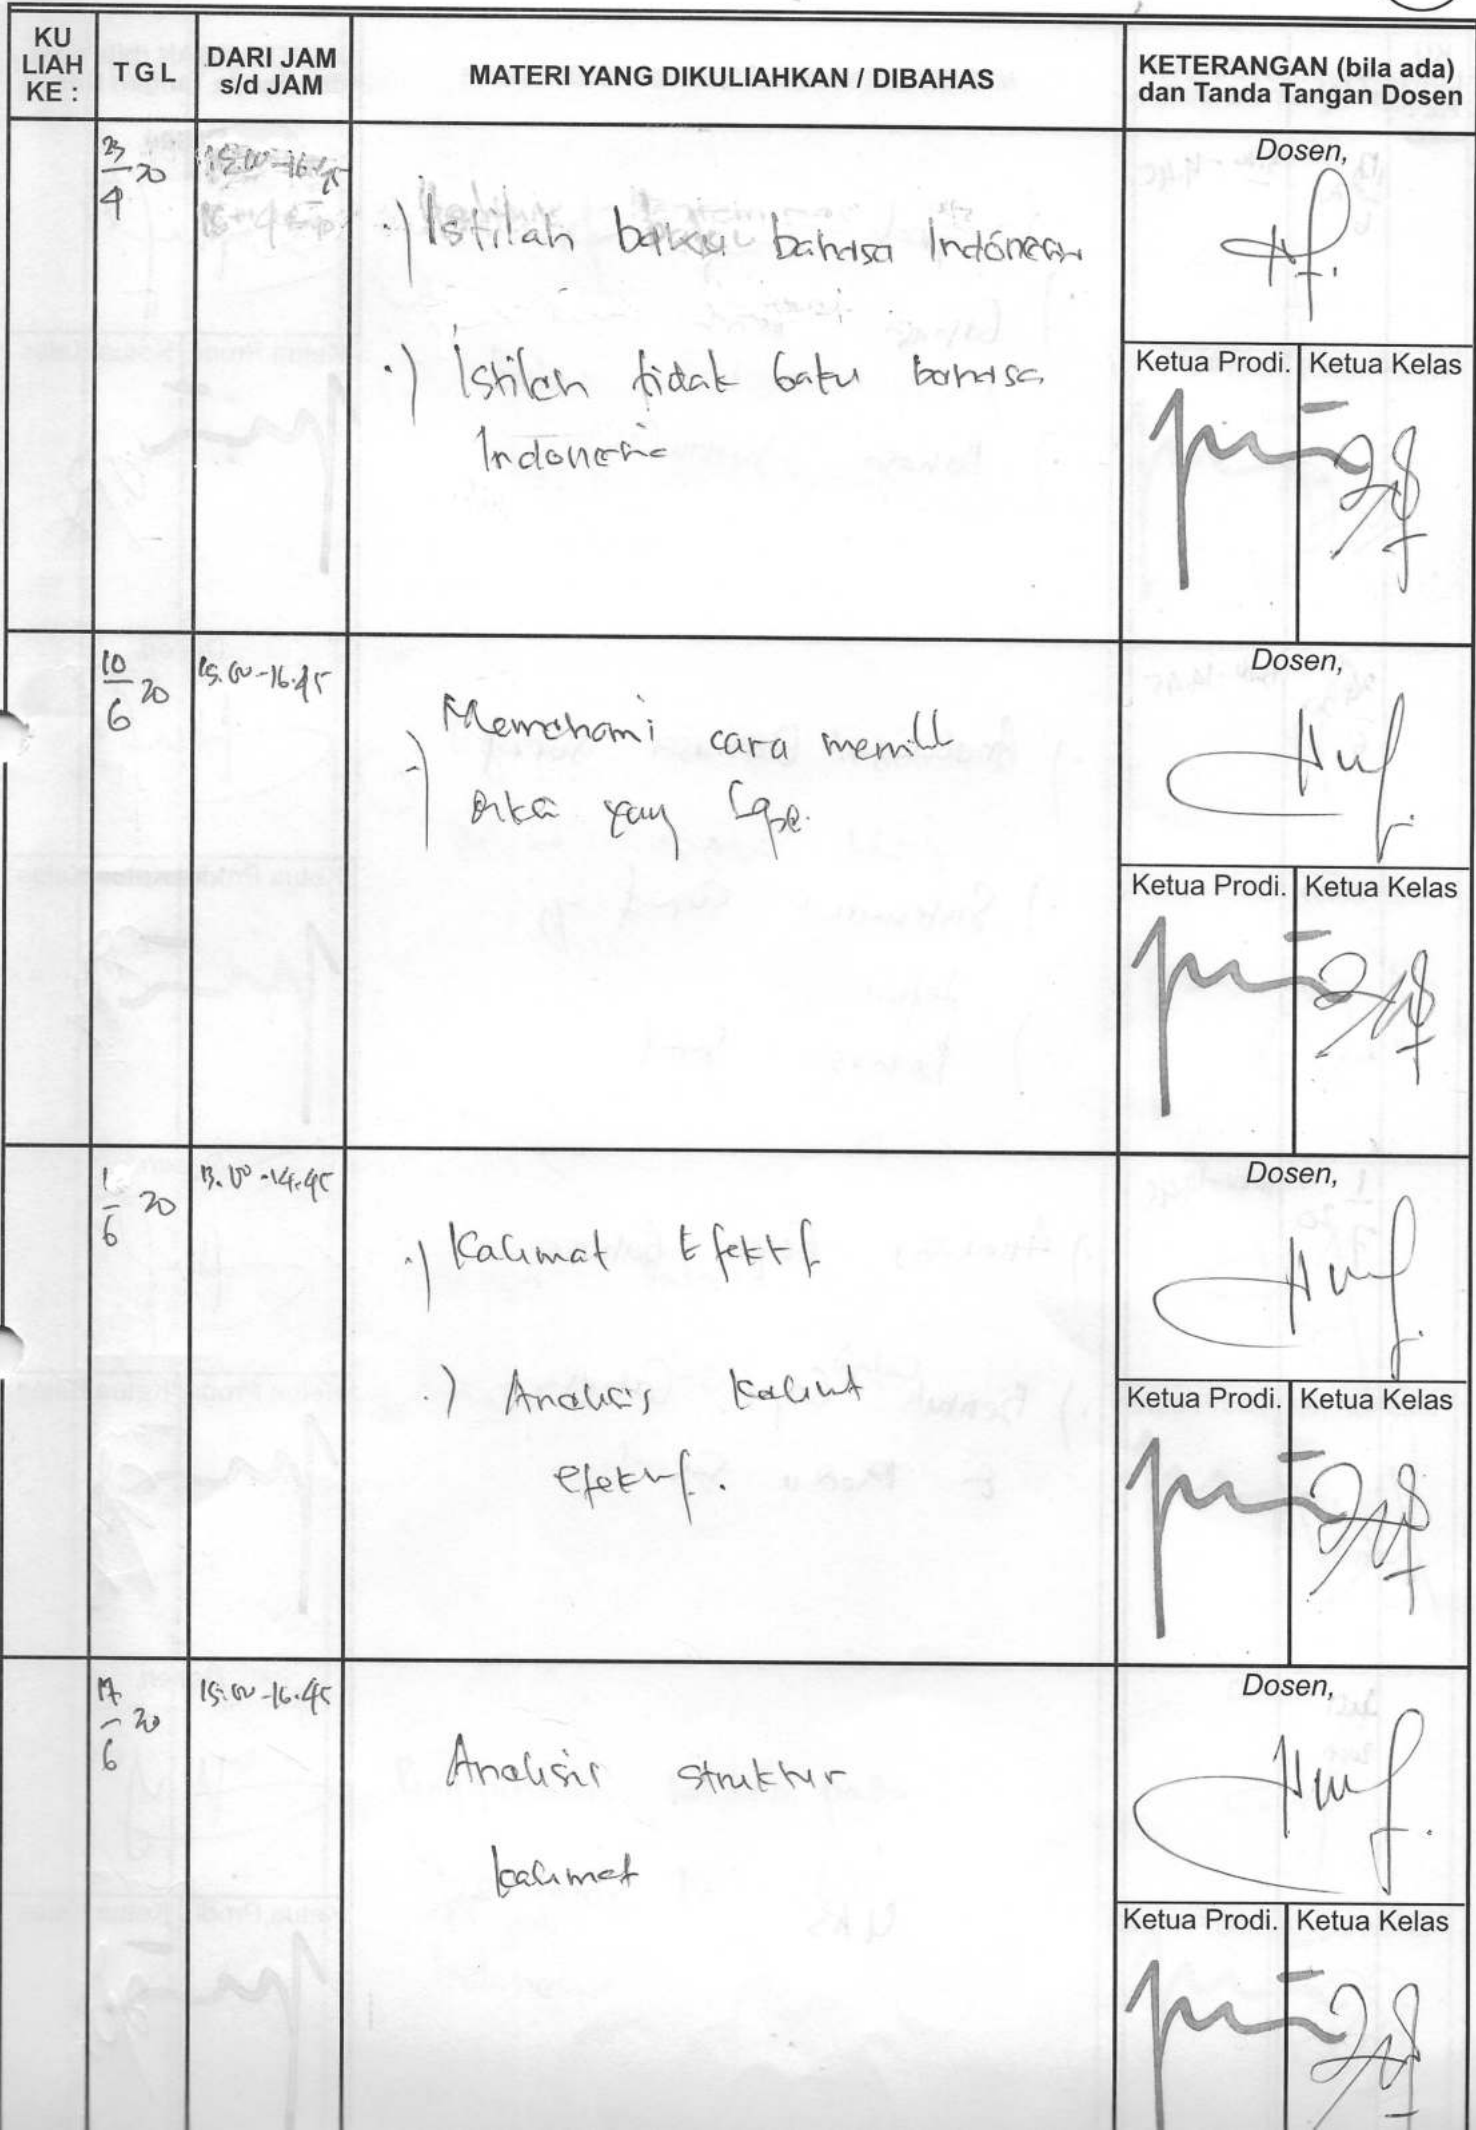 KU LIAH KE :
TGL
DARI JAM s/d JAM
MATERI YANG DIKULIAHKAN / DIBAHAS
KETERANGAN (bila ada) dan Tanda Tangan Dosen
23/4 20
.) Istilah baku bahasa Indonesia
.) Istilah tidak baku bahasa
Indonesia
Dosen,
Ketua Prodi.
Ketua Kelas
10/6 20
15.00-16.45
.) Memahami cara
yang
Dosen,
Ketua Prodi.
Ketua Kelas
1/6 20
13.00-14.45
.) Kalimat Efektif
.) Analisis kalimat
efektif.
Dosen,
Ketua Prodi.
Ketua Kelas
17/6 20
15.00-16.45
Analisis struktur
kalimat
Dosen,
Ketua Prodi.
Ketua Kelas